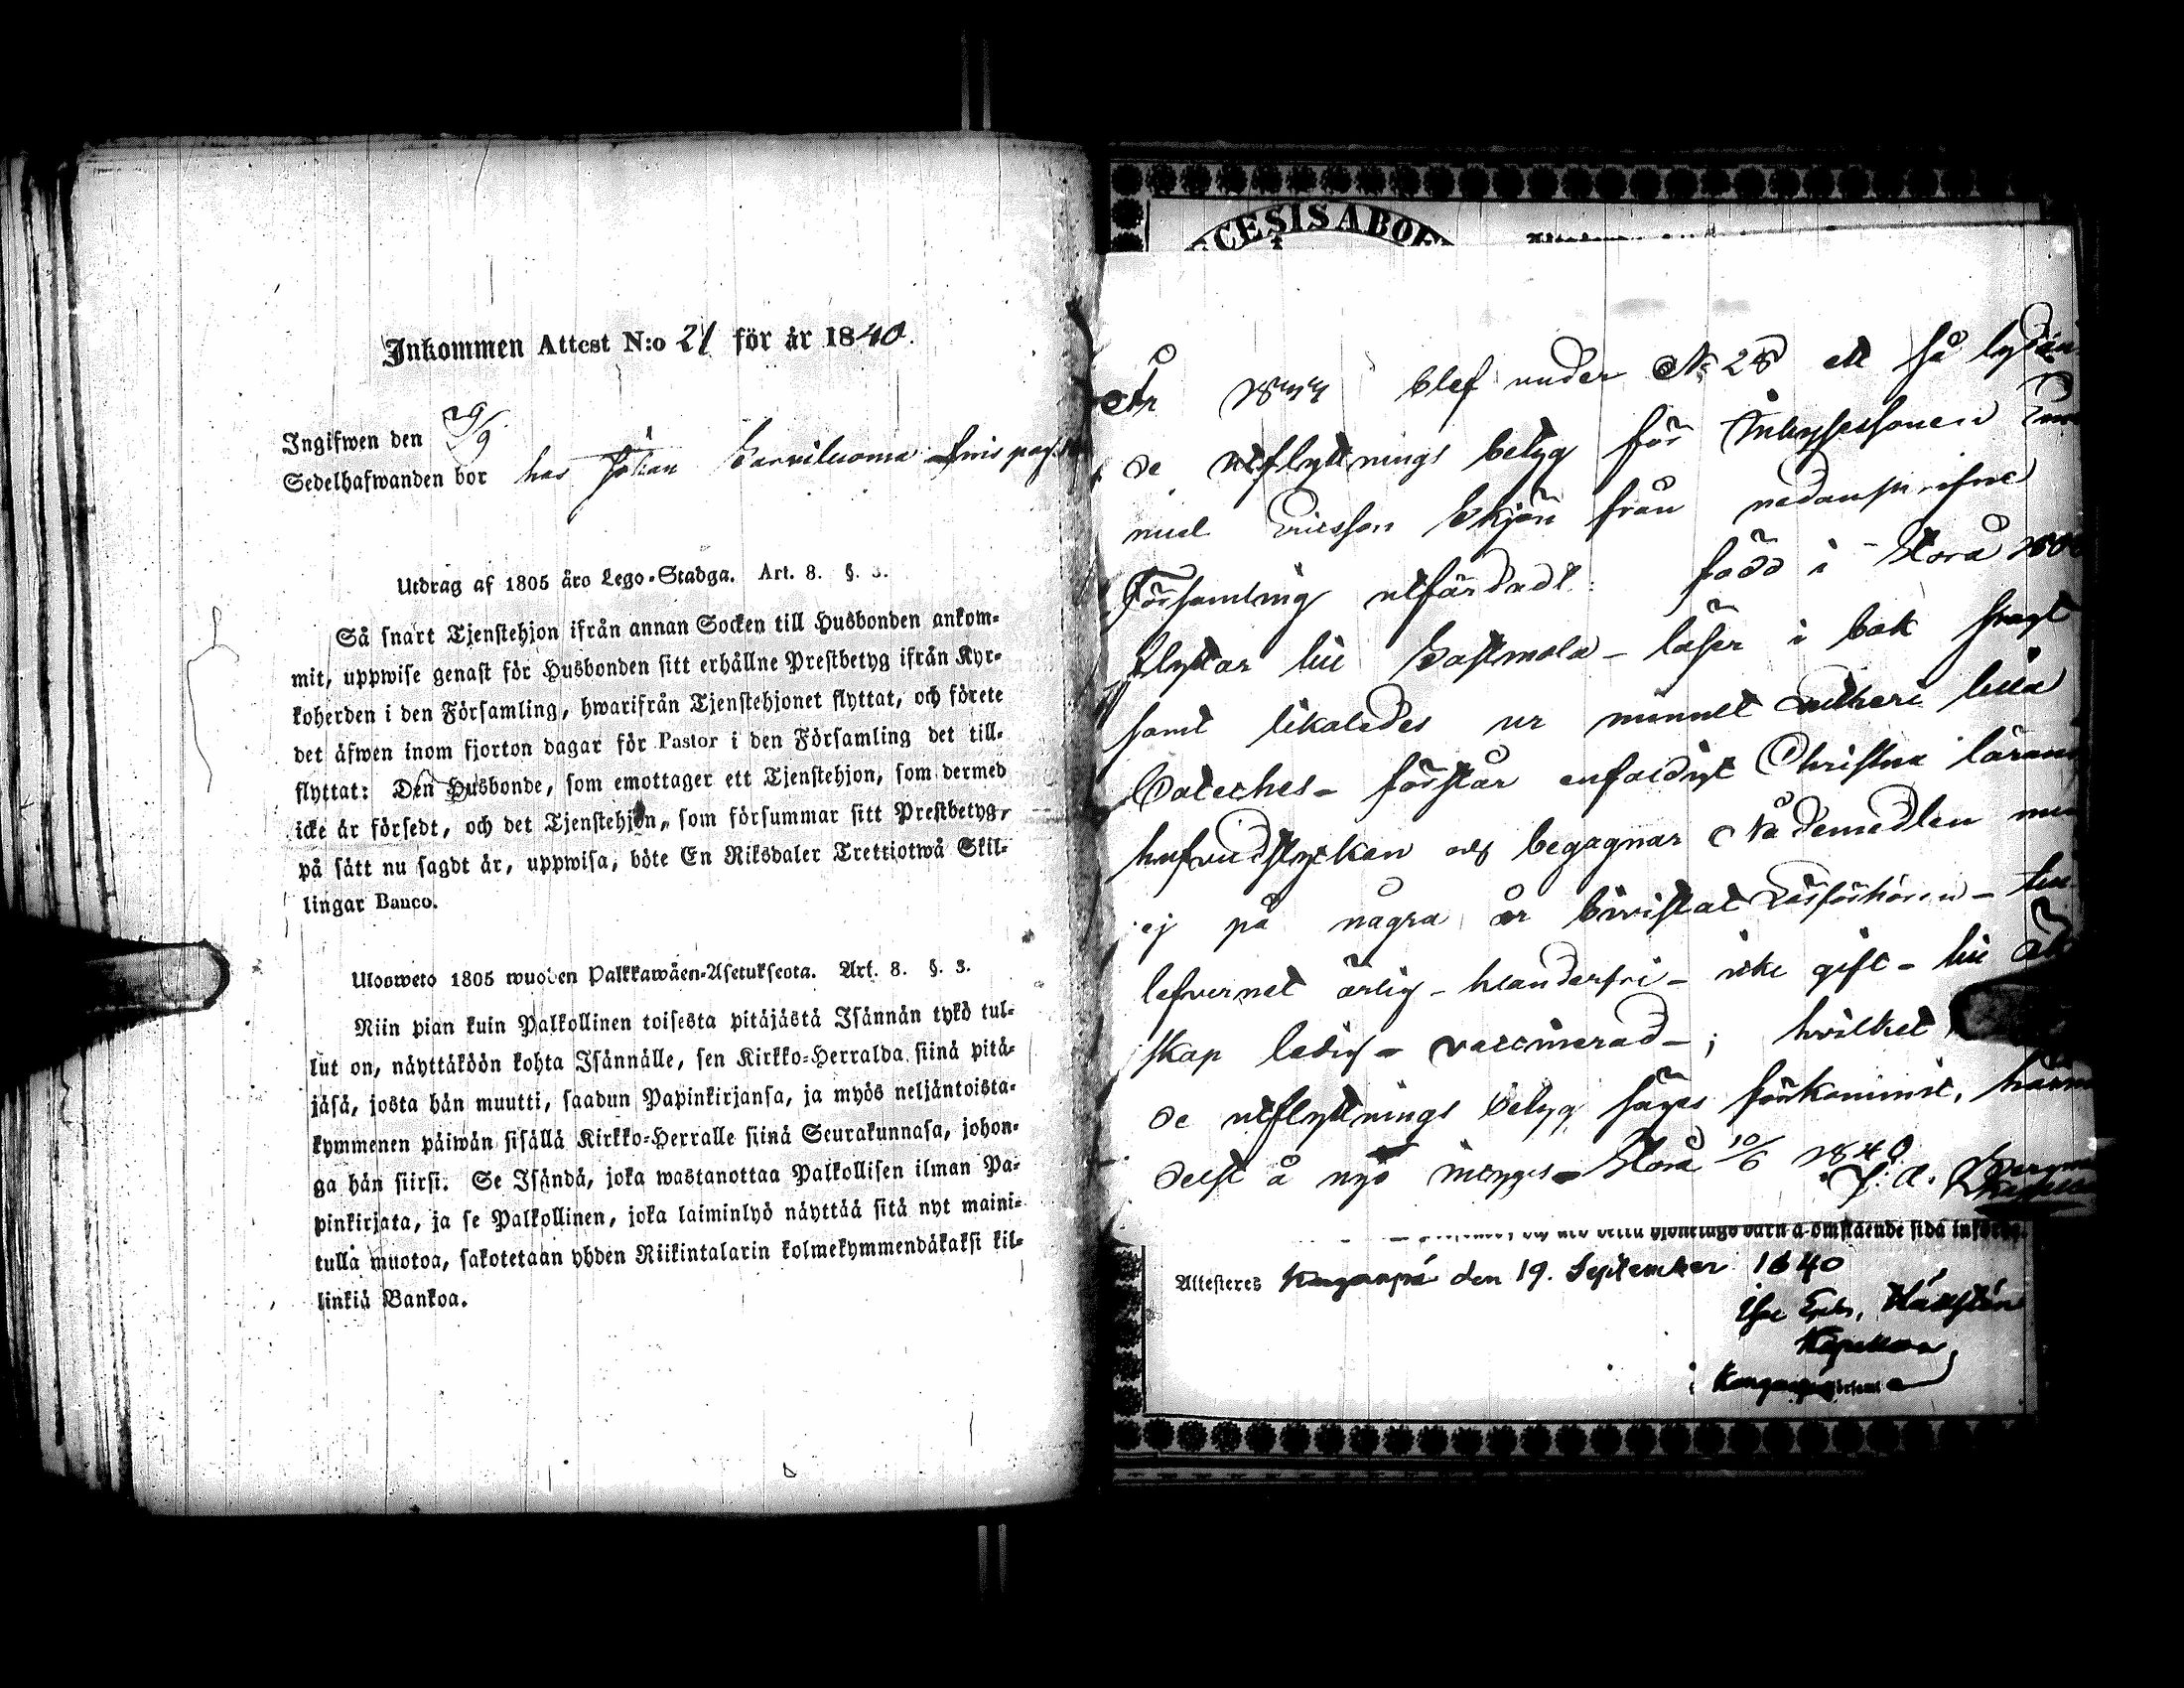 Inkommen Attest N:o 21 för år 1840.
Ingifwen den 29/9
Sedelhafwanden bor hos Johan
Utdrag af 1805 års Lego-Stadga. Art. 8. §. 3.
Så snart Tjenstehjon ifrån annan Socken till Husbonden ankom-
mit, uppwise genast för Husbonden sitt erhållne Prestbetyg ifrån Kyr-
koherden i den Församling, hwarifrån Tjenstehjonet flyttat, och förete
det äfwen inom fjorton dagar för Pastor i den Församling det till-
flyttat: Den Husbonde, som emottager ett Tjenstehjon, som dermed
icke är försedt, och det Tjenstehjon, som försummar sitt Prestbetyg,
på sätt nu sagdt är, uppwisa, böte En Riksdaler Trettiotwå Skil-
lingar Banco.
Ulosweto 1805 wuoden Palkkawäen-Asetuksesta. Art. 8. §. 3.
Niin pian kuin Palkollinen toisesta pitäjästä Isännän tykö tul-
lut on, näyttäköön kohta Isännälle, sen Kirkko-Herralda siinä pitä-
jäsä, josta hän muutti, saadun Papinkirjansa, ja myös neljäntoista-
kymmenen päiwän sisällä Kirkko-Herralle siinä Seurakunnasa, johon-
ga hän siirsi. Se Isändä, joka wastanottaa Palkollisen ilman Pa-
pinkirjata, ja se Palkollinen, joka laiminlyö näyttää sitä nyt maini-
tulla muotoa, sakotetaan yhden Riikintalarin kolmekymmendäkaksi kil-
linkiä Bankoa.
CESIS ABOE
År blef under No 28 ett så
de utflyttnings betyg för Inhysessonen
Ericsson från nedanskrifne
Församling utfärdadt: född i Storå
flyttar till Sastmola - läser i bok
samt likaledes ur minnet Lutheri lilla
Cateches - förstår enfaldigt Christna
hufvudstycken och begagnar Nådemedlen
ej på några år bivistat Läsförhören - till
lefvernet ärlig - klanderfri - icke gift - till
skap ledig - vaccinerad - ; hvilket
de utflyttnings betyg säges förkommit,
delst å nyo intygas - Storå 10/6 1840
barn å omstående sida
Attesteres Kangaanpä den 19. September 1840
Kapellan
i